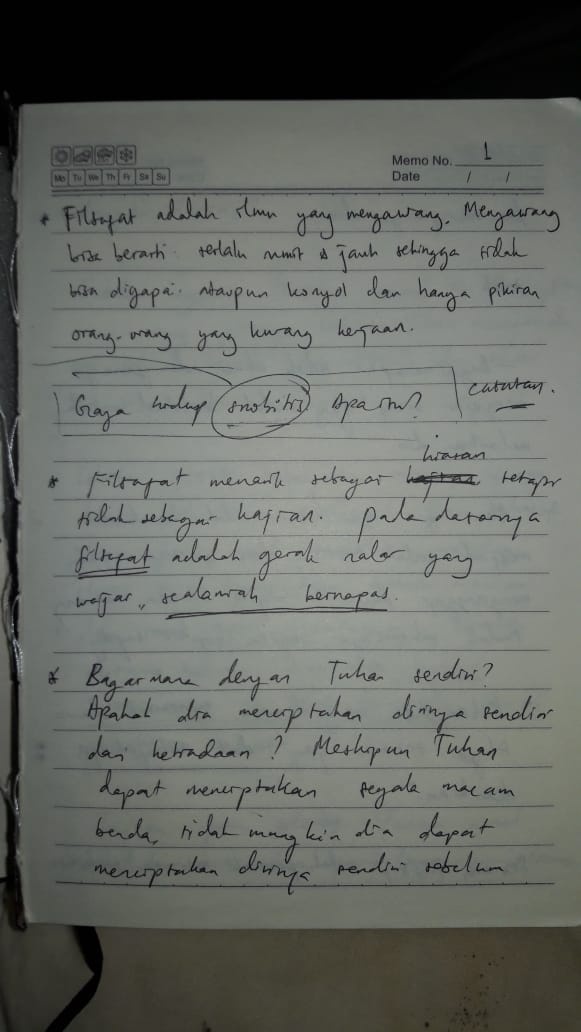 Memo No. 1
Mo Tu We Th Fr Sa Su
Date / /
* Filsapat adalah ilmu yang mengawang. Mengawang
bisa berarti terlalu rumit & jauh sehingga tidak
bisa digapai. Ataupun konyol dan hanya pikiran
orang-orang yang kurang kerjaan.
Gaya hidup snobitis Apa itu? catatan.
hiasan
* Filsapat menarik sebagai kajian tetapi
tidak sebagai kajian. pada dasarnya
filsapat adalah gerak nalar yang
wajar, sealamiah bernapas.
* Bagaimana dengan Tuhan sendiri?
Apakah dia menciptakan dirinya sendiri
dari ketiadaan? Meskipun Tuhan
dapat menciptakan segala macam
benda, tidak mungkin dia dapat
menciptakan dirinya sendiri sebelum